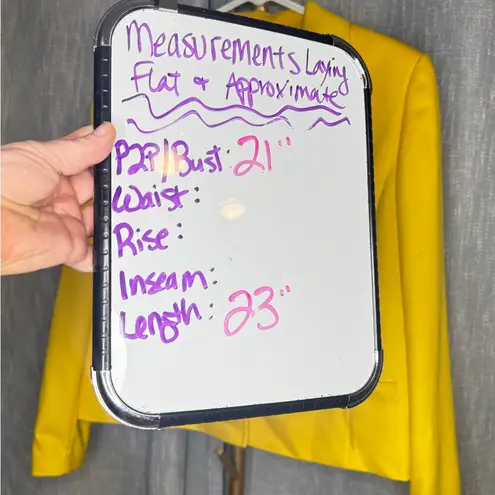 Measurements Laying
Flat + Approximate
P2P/Bust: 21"
Waist:
Rise:
Inseam:
Length: 23"